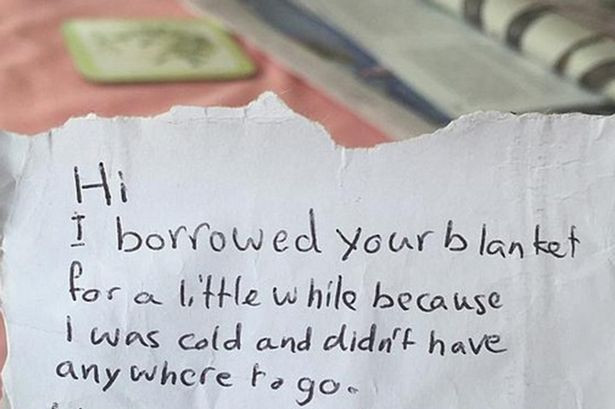 Hi
I borrowed your blanket
for a little while because
I was cold and didn't have
anywhere to go.